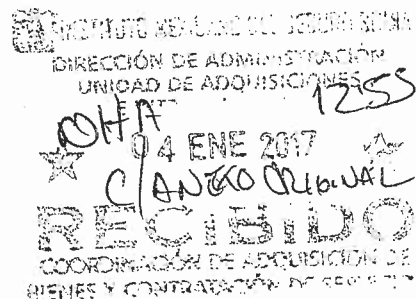 INSTITUTO MEXICANO DEL SEGURO SOCIAL
DIRECCIÓN DE ADMINISTRACIÓN
UNIDAD DE ADQUISICIONES
1255
04 ENE 2017
C/ANEXO ORIGINAL
RECIBIDO
COORDINACIÓN DE ADQUISICIÓN DE
BIENES Y CONTRATACIÓN DE